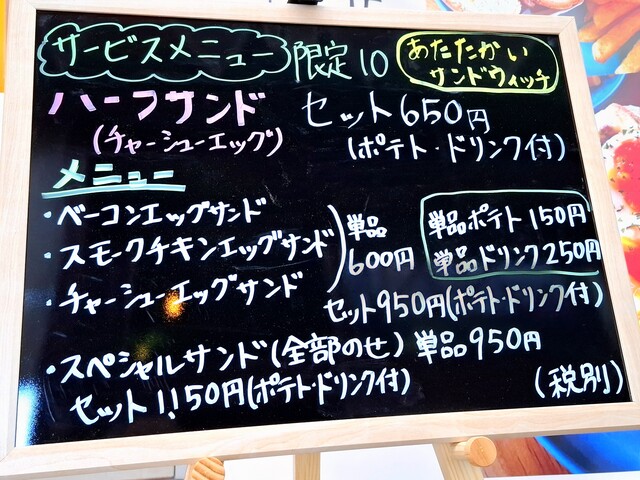 サービスメニュー 限定10 あたたかい
サンドウィッチ
ハーフサンド セット650円
(チャーシューエッグ) (ポテト・ドリンク付)
メニュー
・ベーコンエッグサンド
・スモークチキンエッグサンド
・チャーシューエッグサンド
単品
600円
単品ポテト 150円
単品ドリンク250円
セット950円(ポテト・ドリンク付)
・スペシャルサンド(全部のせ) 単品950円
セット1,150円(ポテト・ドリンク付) (税別)